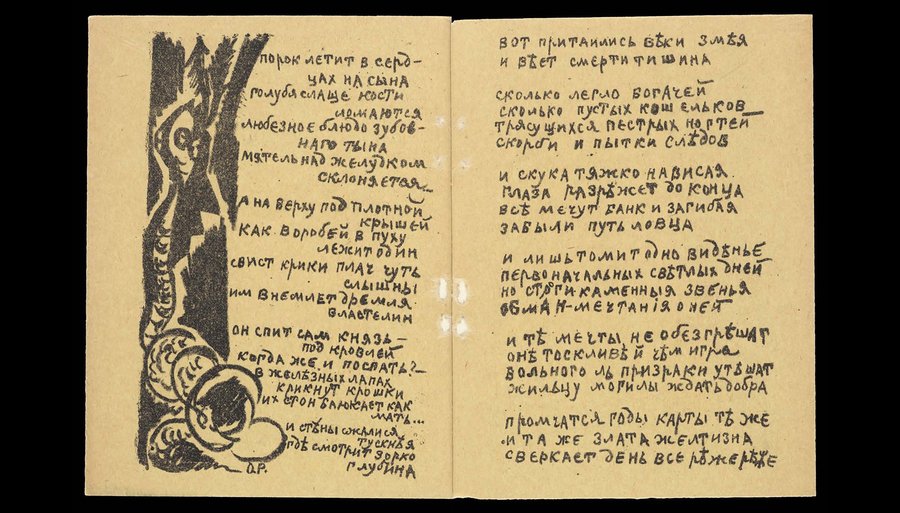 порок летит в серд-
цах на сына
голубя слаще кости
ломаются
любезное блюдо зубов-
наго тына
мятель над желудком
склоняется...
а на верху под плотной
крышей
как воробей в пуху
лежит один
свист крики плач чуть
слышны
им внемлет дремля
властелин
он спит сам князь—
под кровлей
когда же и поспать?—
в желѣзных лапах
крикнут крошки
их стон баюкает как
мать...
и стѣны сжалися
тускнѣя
гдѣ смотрит зорко
глубина
О.Р.
вот притаились вѣки змѣя
и вѣет смерти тишина
сколько легло богачей
сколько пустых кошельков
трясущихся пестрых ногтей
скорби и пытки слѣдов
и скука тяжко нависая
глаза разрѣжет до конца
всѣ мечут банк и загибая
забыли путь ловца
и лишь томит одно видѣнье
первоначальных свѣтлых дней
но строги каменныя звенья
обман—мечтанiя о ней
и тѣ мечты не обезгрѣшат
онѣ тоскливѣй чѣм игра
вольного ль призраки утѣшат
жильцу могилы ждать добра
промчатся годы карты тѣ же
и та же злата желтизна
сверкает день все рѣже рѣже